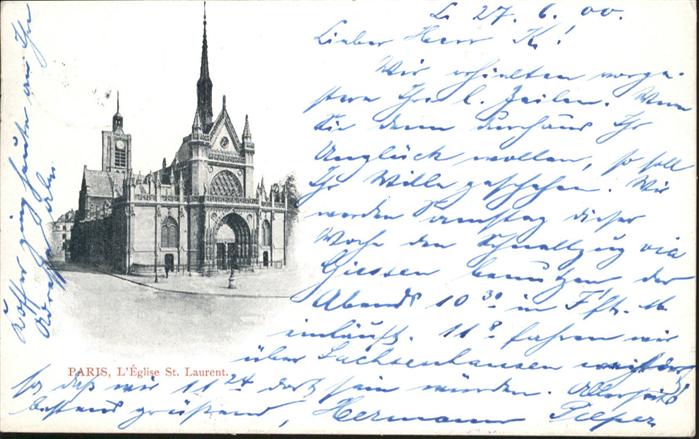 L. 27.6.00.
Lieber Herr K.!
Wir erhielten vorge-
stern Ihre l. Zeilen. Wenn
Sie denn durchaus Ihr
Unglück wollen, so soll
Ihr Wille geschehen. Wir
werden Samstag dieser
Woche den Schnellzug via
Giessen benutzen der
Abends 10 30 in Fft. M.
einläuft. 11 8 fahren wir
über Sachsenhausen
so daß wir 11 24 dort sein würden. Allerseits
bestens grüßend, Hermann Pieper
Koffer ging heute an Ihre
Adresse
PARIS, L'Église St. Laurent.